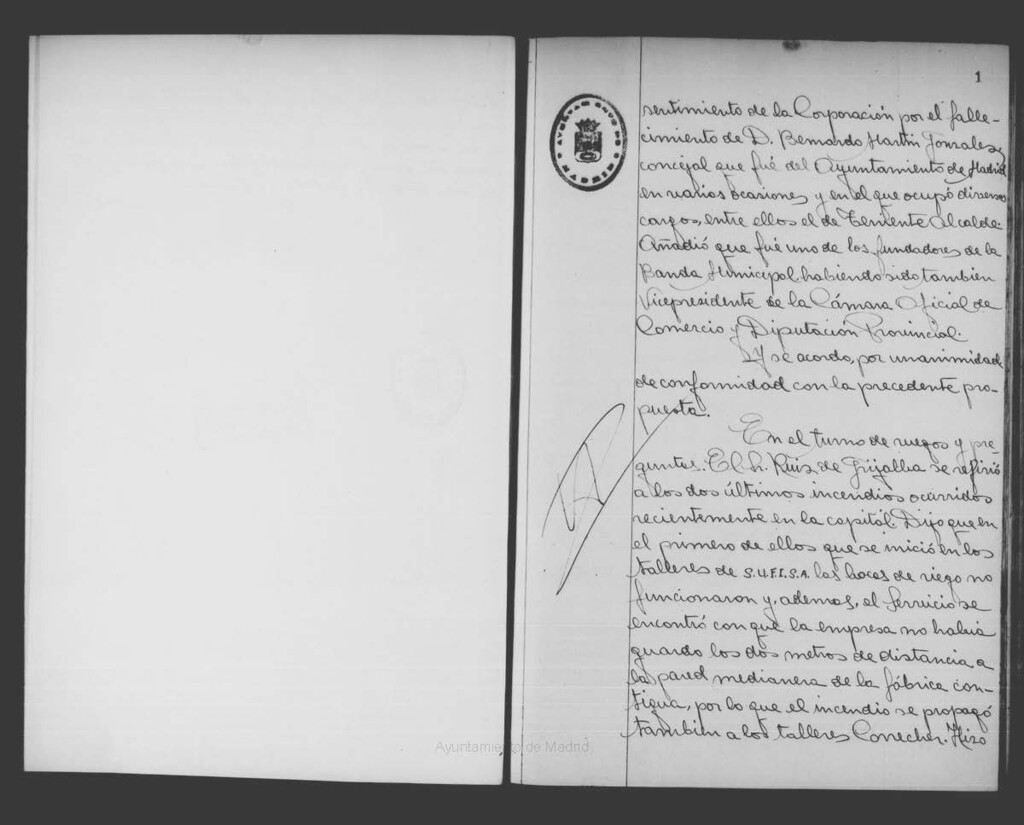 1
AYUNTAMIENTO DE MADRID
sentimiento de la Corporación por el falle-
cimiento de D. Bernardo Martín Gonzalez,
concejal que fué del Ayuntamiento de Madrid
en varios ocasiones, y en el que ocupó diversos
cargos, entre ellos el de Teniente Alcalde.
Añadió que fué uno de los fundadores de la
Banda Municipal, habiendo sido también
Vicepresidente de la Cámara Oficial de
Comercio y Diputación Provincial.
Y se acordo, por unanimidad,
de conformidad con la precedente pro-
puesta.
En el turno de ruegos y pre-
guntas. El Sr. Ruiz de Grijalba se refirió
a los dos últimos incendios ocurridos
recientemente en la capital. Dijo que en
el primero de ellos que se inició en los
talleres de S.U.F.I.S.A. las bocas de riego no
funcionaron y, ademas, el servicio se
encontró con que la empresa no había
guardo los dos metros de distancia a
la pared medianera de la fábrica con-
tigua, por lo que el incendio se propagó
también a los talleres Correcher. Hizo
Ayuntamiento de Madrid